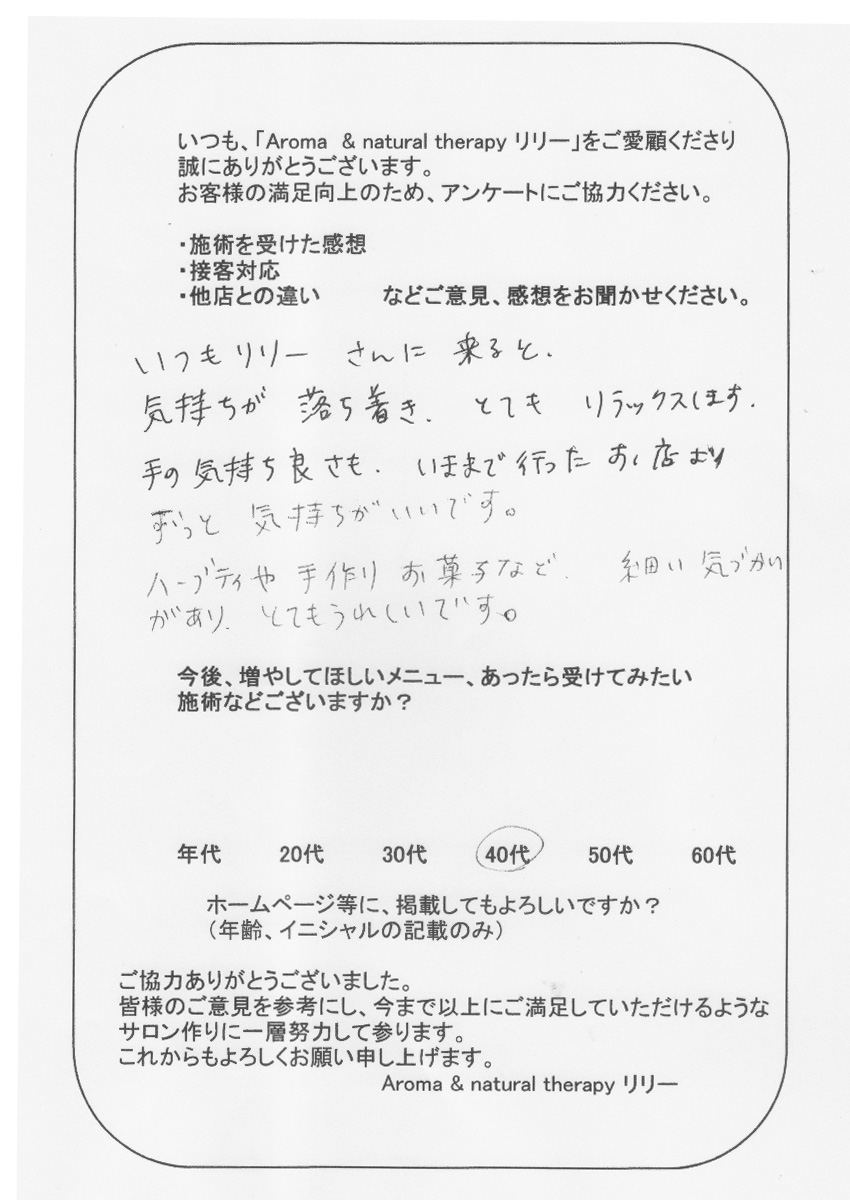 いつも、「Aroma & natural therapy リリー」をご愛顧くださり
誠にありがとうございます。
お客様の満足向上のため、アンケートにご協力ください。
・施術を受けた感想
・接客対応
・他店との違い などご意見、感想をお聞かせください。
いつもリリー さんに 来ると、
気持ちが 落ち着き、とても リラックスします。
手の気持ち良さも、いままで行ったお店より
ずっと 気持ちがいいです。
ハーブティや 手作り お菓子など、細い気づかい
があり、とてもうれしいです。
今後、増やしてほしいメニュー、あったら受けてみたい
施術などございますか？
年代 20代 30代 40代 50代 60代
ホームページ等に、掲載してもよろしいですか？
（年齢、イニシャルの記載のみ）
ご協力ありがとうございました。
皆様のご意見を参考にし、今まで以上にご満足していただけるような
サロン作りに一層努力して参ります。
これからもよろしくお願い申し上げます。
Aroma & natural therapy リリー